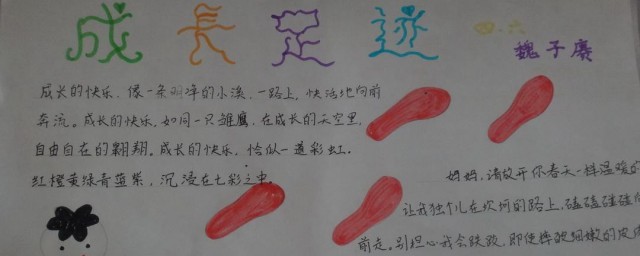 成长足迹
四.六
魏子赛
成长的快乐，像一条明净的小溪，一路上，快活地向前
奔流。成长的快乐，如同一只雏鹰，在成长的天空里，
自由自在的翱翔。成长的快乐，恰似一道彩虹。
红橙黄绿青蓝紫，沉浸在七彩之中。
妈妈，请放开你春天一样温暖的
让我独个儿在坎坷的路上，磕磕碰碰
前走。别担心我会跌跤，即使摔破细嫩的皮